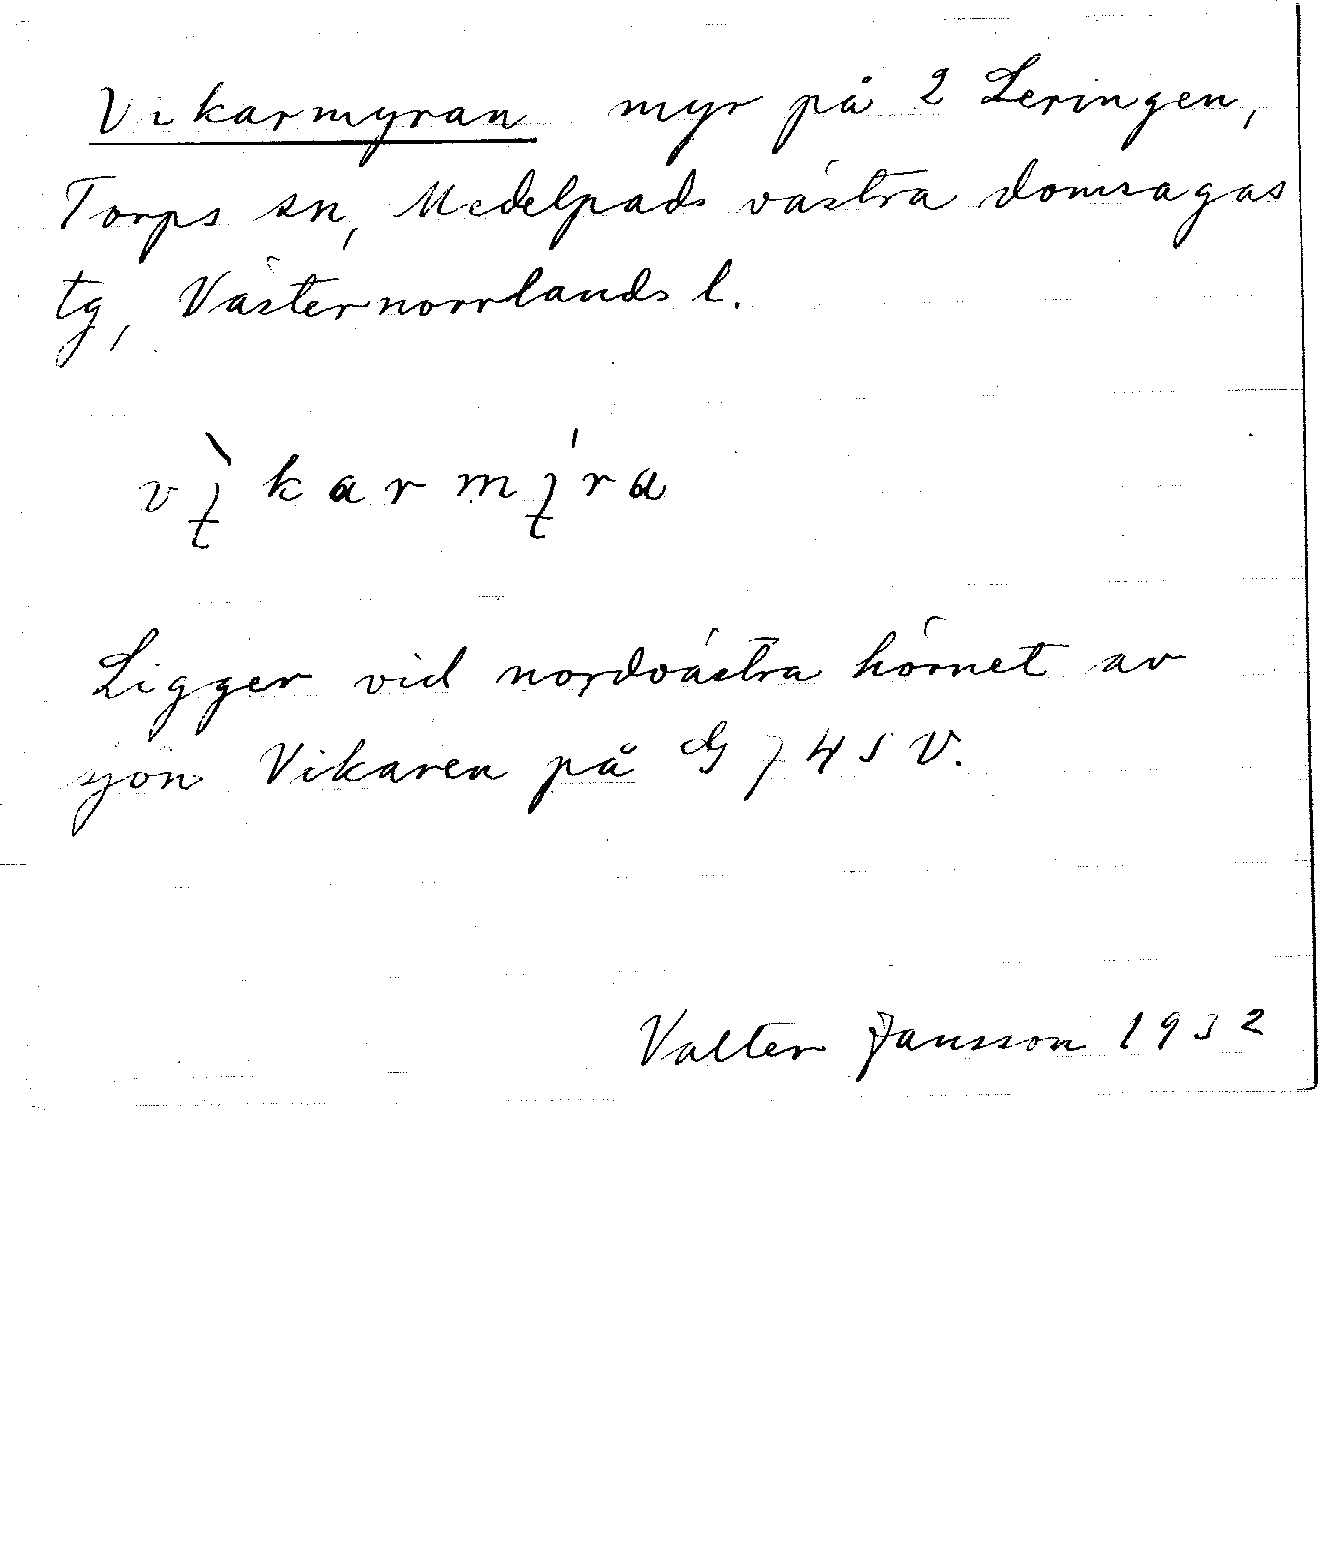 Vikarmyran myr på 2 Leringen,
Torps sn, Medelpads västra domsagas
tg, Västernorrlands l.
Ligger vid nordvästra hörnet av
sjön Vikaren på G 745 V.
Valter Jansson 1932